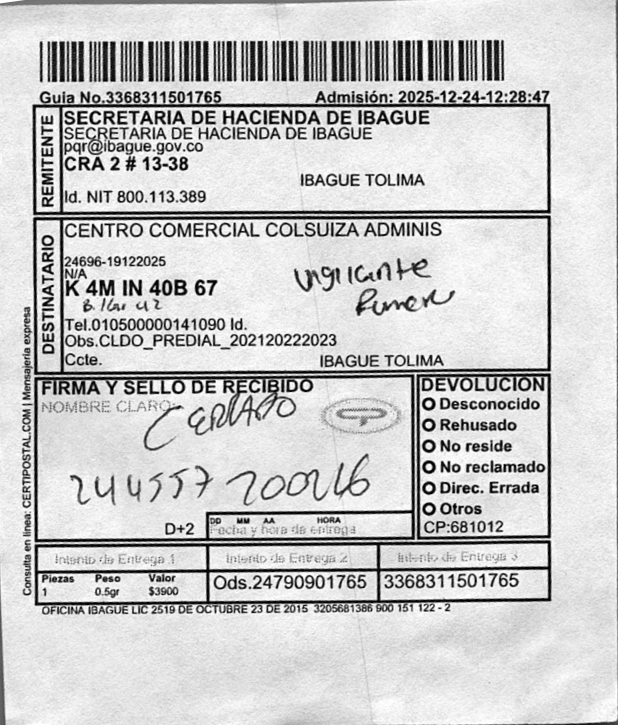 Guia No.3368311501765 Admisión: 2025-12-24-12:28:47
REMITENTE
SECRETARIA DE HACIENDA DE IBAGUE
SECRETARIA DE HACIENDA DE IBAGUE
pqr@ibague.gov.co
CRA 2 # 13-38
IBAGUE TOLIMA
Id. NIT 800.113.389
DESTINATARIO
CENTRO COMERCIAL COLSUIZA ADMINIS
24696-19122025
N/A
K 4M IN 40B 67
vigilante
Tel.010500000141090 Id.
Obs.CLDO_PREDIAL_202120222023
Ccte. IBAGUE TOLIMA
FIRMA Y SELLO DE RECIBIDO
NOMBRE CLARO:
CERRADO
244557 200246
D+2
DD MM AA HORA
Fecha y hora de entrega
DEVOLUCION
Desconocido
Rehusado
No reside
No reclamado
Direc. Errada
Otros
CP:681012
Intento de Entrega 1 Intento de Entrega 2 Intento de Entrega 3
Piezas Peso Valor
1 0.5gr $3900
Ods.24790901765 3368311501765
OFICINA IBAGUE LIC 2519 DE OCTUBRE 23 DE 2015 3205681386 900 151 122 - 2
Consulta en línea: CERTIPOSTAL.COM | Mensajería expresa